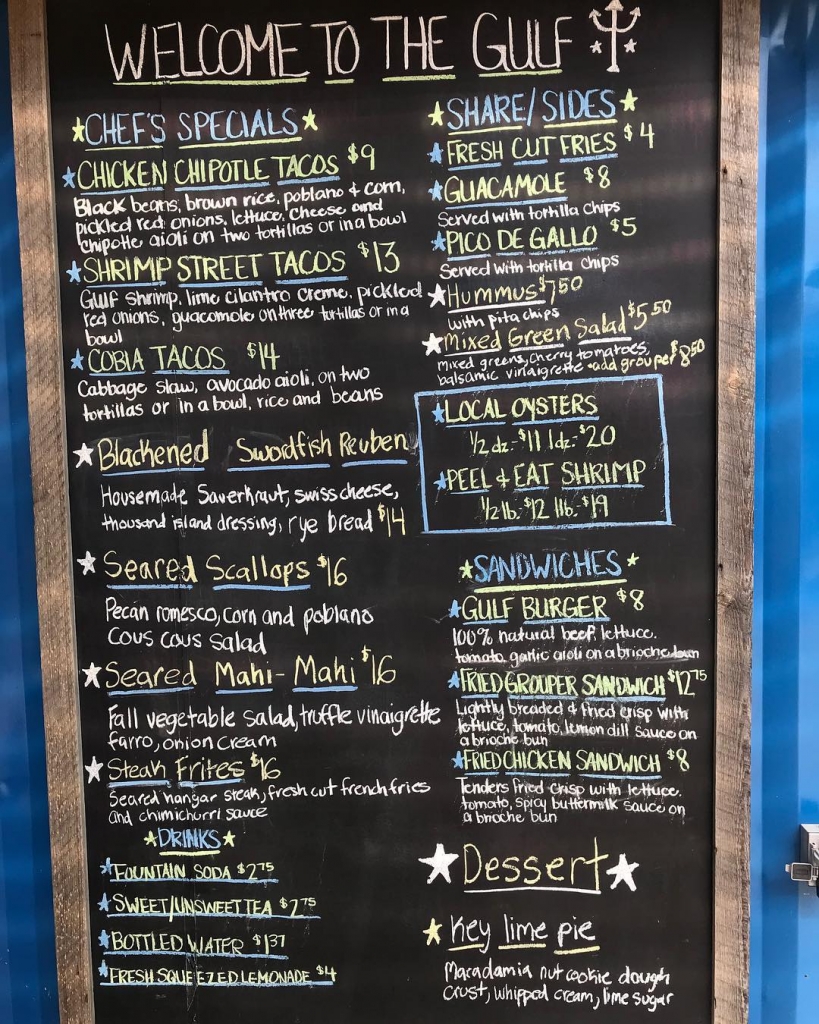 WELCOME TO THE GULF
CHEF'S SPECIALS
CHICKEN CHIPOTLE TACOS $9
Black beans, brown rice, poblano + corn,
pickled red onions, lettuce, cheese and
chipotle aioli on two tortillas or in a bowl
SHRIMP STREET TACOS $13
Gulf shrimp, lime cilantro creme, pickled
red onions, guacamole on three tortillas or in a
bowl
COBIA TACOS $14
Cabbage slaw, avocado aioli, on two
tortillas or in a bowl, rice and beans
Blackened Swordfish Reuben
Housemade Saverkraut, swiss cheese,
thousand island dressing, rye bread $14
Seared Scallops $16
Pecan romesco, corn and poblano
Cous Cous Salad
Seared Mahi-Mahi $16
Fall vegetable Salad, truffle vinaigrette
farro, onion cream
Steak Frites $16
Seared hangar steak, fresh cut french fries
and chimichurri sauce
DRINKS
FOUNTAIN SODA $2.75
SWEET/UNSWEET TEA $2.75
BOTTLED WATER $1.37
FRESH SQUEEZED LEMONADE $4
SHARE/SIDES
FRESH CUT FRIES $4
GUACAMOLE $8
Served with tortilla chips
PICO DE GALLO $5
Served with tortilla chips
Hummus $7.50
with pita chips
Mixed Green Salad $5.50
mixed greens, cherry tomatoes,
balsamic vinaigrette *add grouper $8.50
LOCAL OYSTERS
1/2 dz.-$11 1dz.-$20
PEEL & EAT SHRIMP
1/2 lb.-$12 1lb.-$19
SANDWICHES
GULF BURGER $8
100% natural beef, lettuce,
tomato, garlic aioli on a brioche bun
FRIED GROUPER SANDWICH $12.75
Lightly breaded & fried crisp with
lettuce, tomato, lemon dill sauce on
a brioche bun
FRIED CHICKEN SANDWICH $8
Tenders fried crisp with lettuce,
tomato, spicy buttermilk sauce on
a brioche bun
Dessert
Key lime pie
Macadamia nut cookie dough
crust, whipped cream, lime sugar